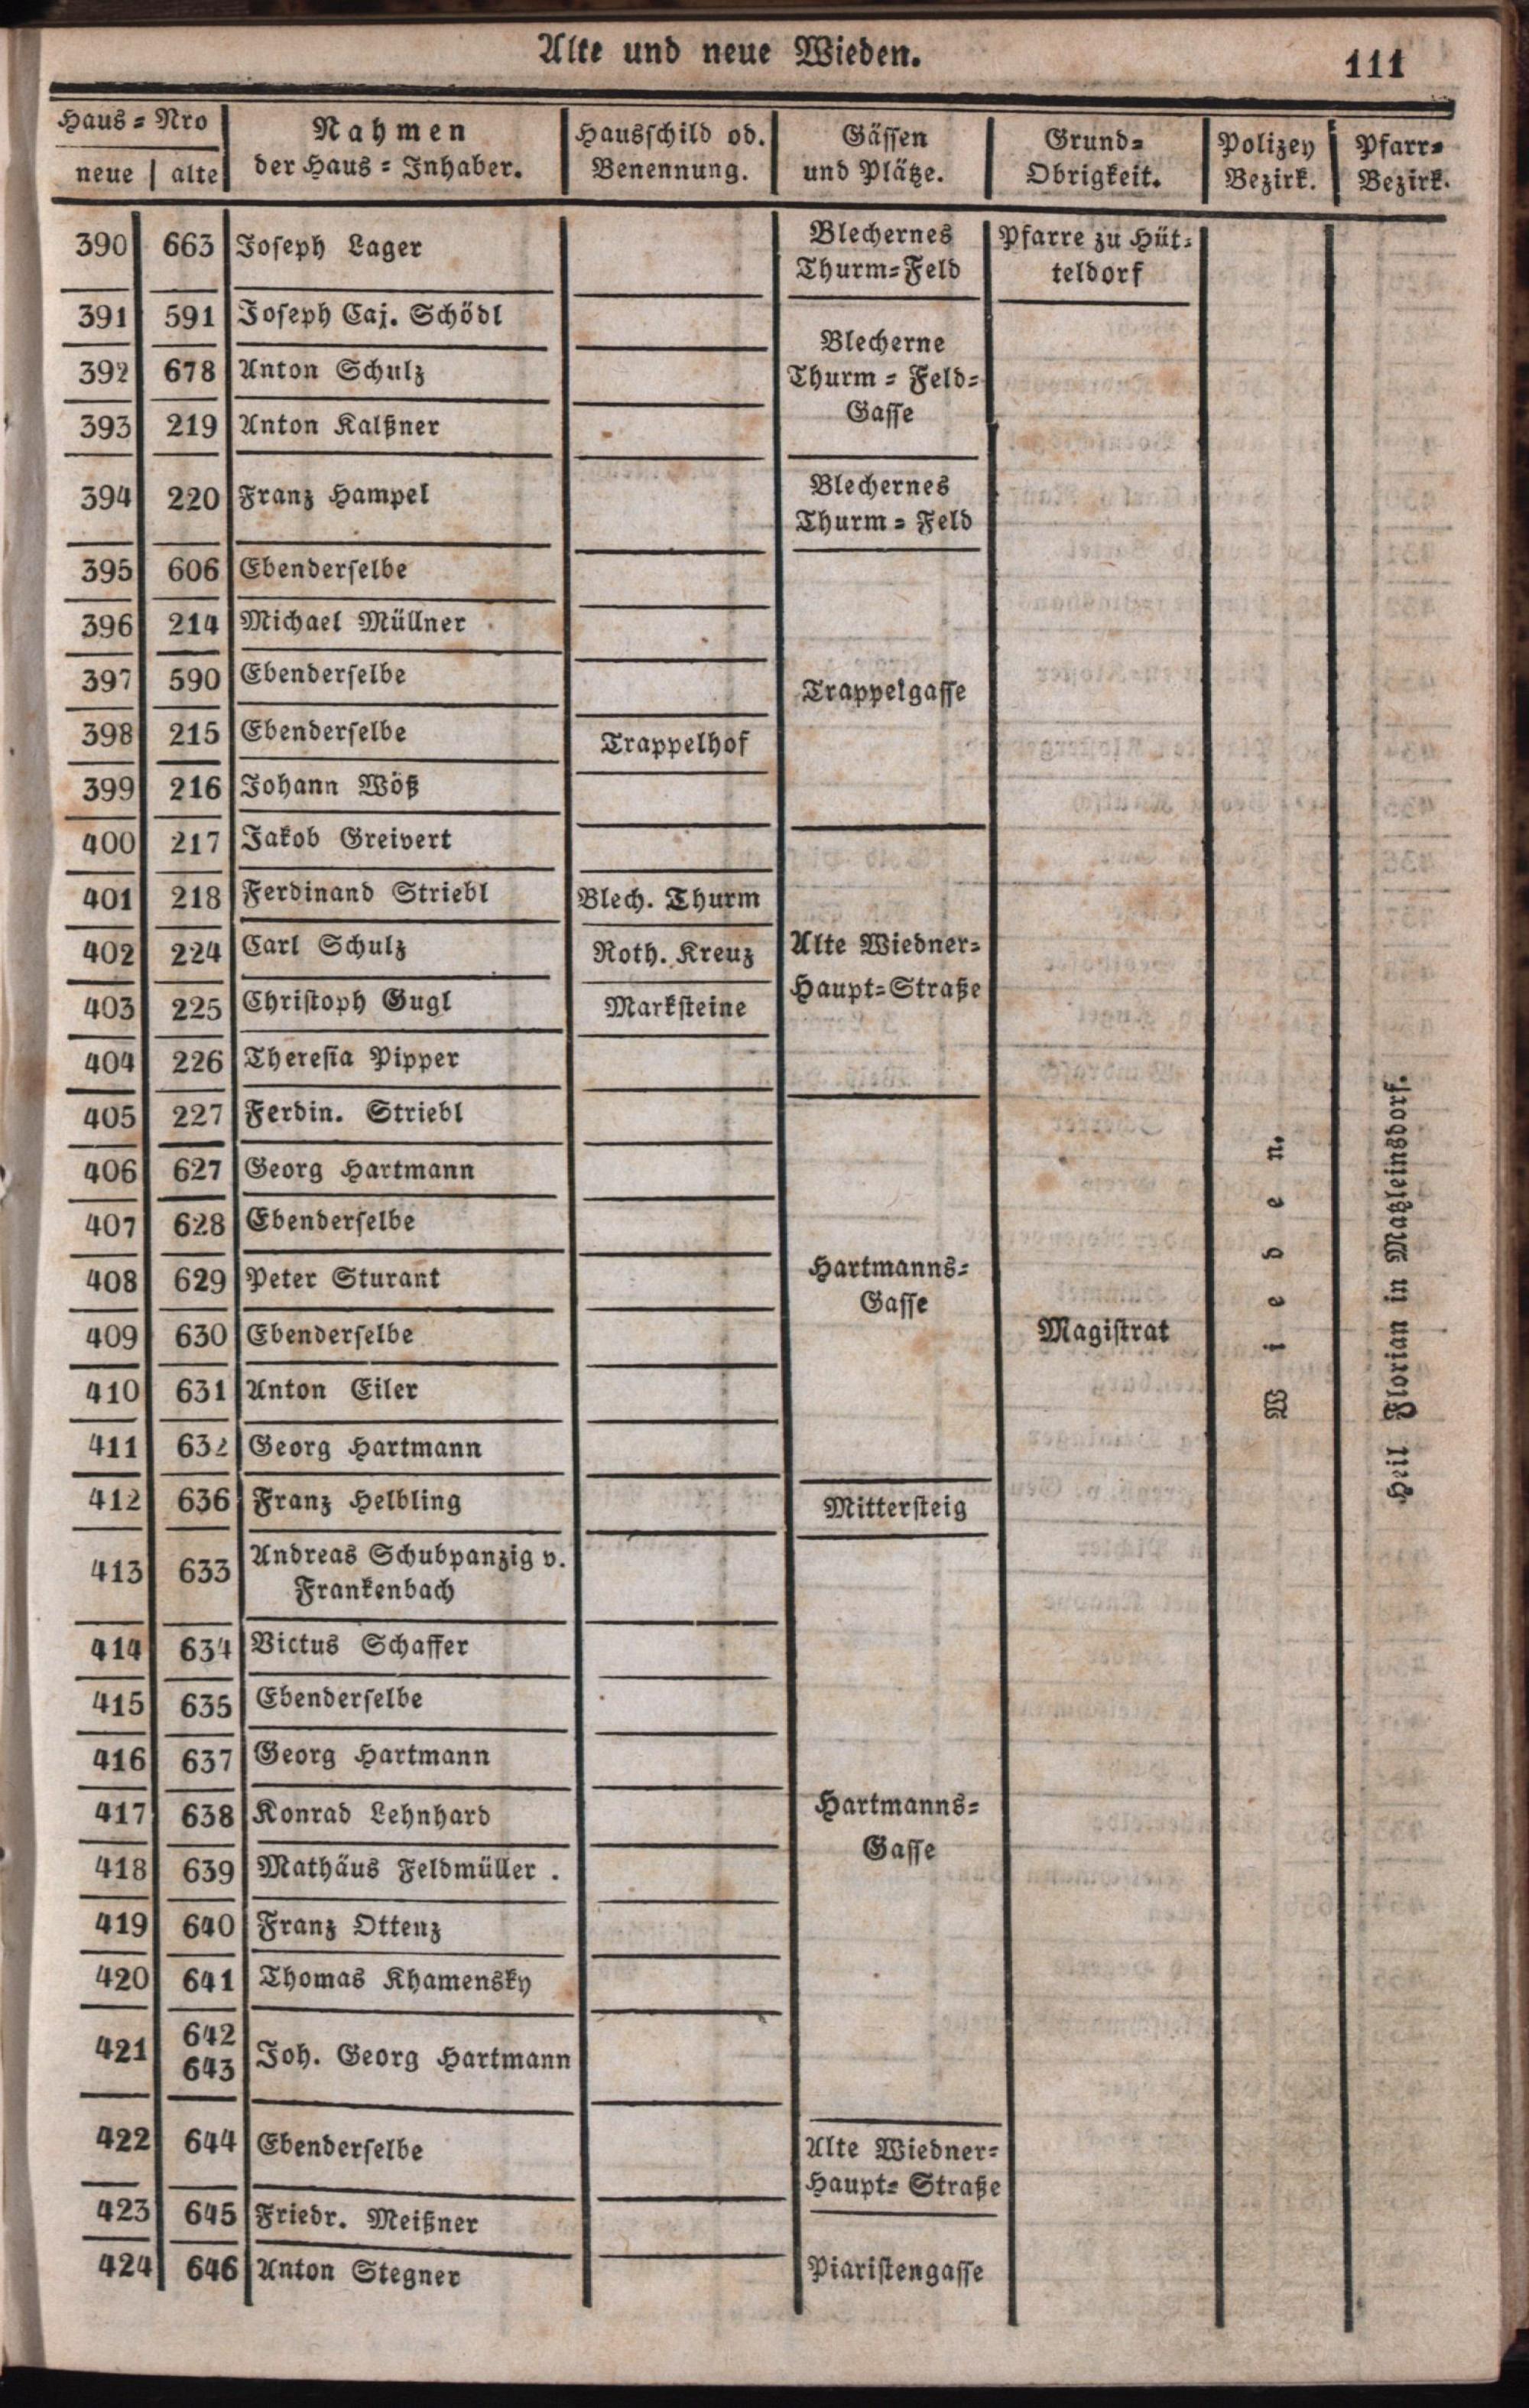 Alte und neue Wieden.
111
Haus = Nro
neue | alte
Nahmen
der Haus = Inhaber.
Hausschild od.
Benennung.
Gässen
und Plätze.
Grund=
Obrigkeit.
Polizey
Bezirk.
Pfarr=
Bezirk.
390 663 Joseph Lager
Blechernes
Thurm=Feld
Pfarre zu Hüt=
teldorf
391 591 Joseph Caj. Schödl
392 678 Anton Schulz
393 219 Anton Kalßner
Blecherne
Thurm = Feld=
Gasse
394 220 Franz Hampel
Blechernes
Thurm = Feld
395 606 Ebenderselbe
396 214 Michael Müllner
397 590 Ebenderselbe
398 215 Ebenderselbe Trappelhof
399 216 Johann Wöß
Trappelgasse
400 217 Jakob Greivert
401 218 Ferdinand Striebl Blech. Thurm
402 224 Carl Schulz Roth. Kreuz
403 225 Christoph Gugl Marksteine
404 226 Theresia Pipper
Alte Wiedner=
Haupt=Straße
405 227 Ferdin. Striebl
406 627 Georg Hartmann
407 628 Ebenderselbe
408 629 Peter Sturant
409 630 Ebenderselbe
410 631 Anton Eiler
411 632 Georg Hartmann
Hartmanns=
Gasse
412 636 Franz Helbling Mittersteig
413 633 Andreas Schubpanzig v.
Frankenbach
414 634 Victus Schaffer
415 635 Ebenderselbe
416 637 Georg Hartmann
417 638 Konrad Lehnhard
418 639 Mathäus Feldmüller .
419 640 Franz Ottenz
420 641 Thomas Khamensky
421 642
643 Joh. Georg Hartmann
Hartmanns=
Gasse
422 644 Ebenderselbe
Alte Wiedner=
Haupt= Straße
423 645 Friedr. Meißner
424 646 Anton Stegner
Piaristengasse
Magistrat
Wieden.
Heil Florian in Matzleinsdorf.